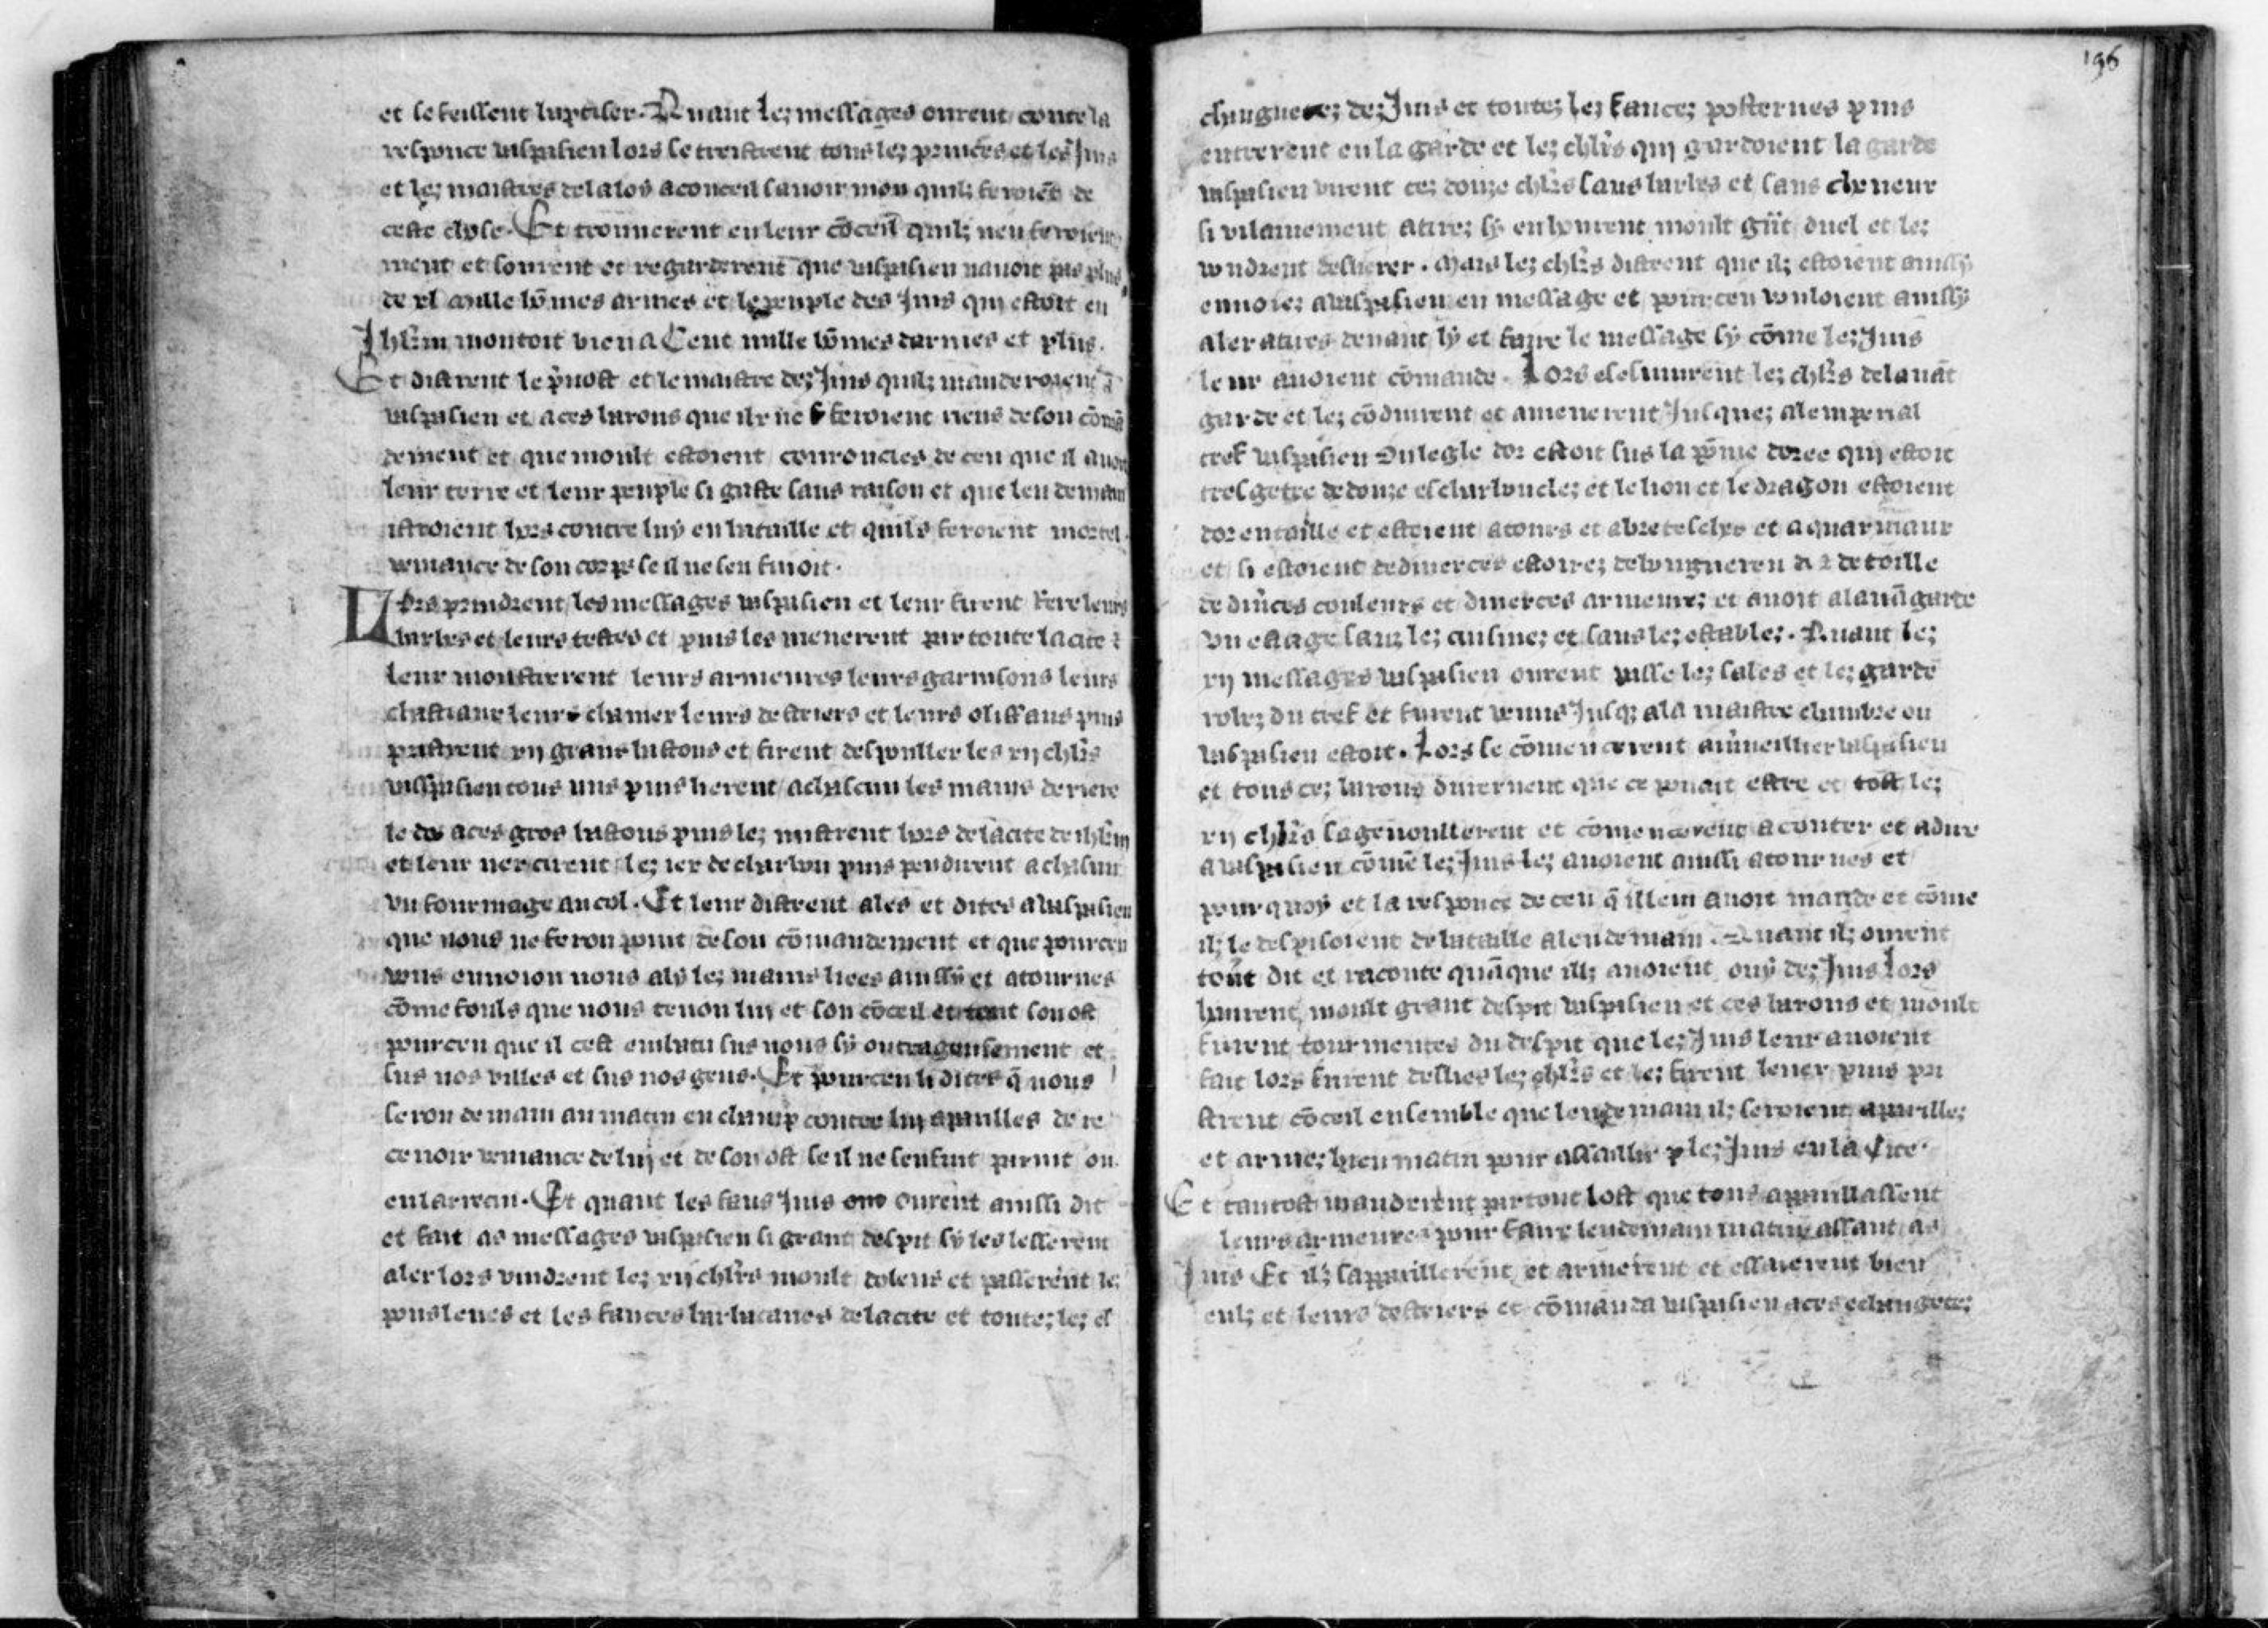 et se feissent baptiser. Quant lez messages ourent conte la
responce vaspasien lors se treistrent tous lez princes et les Juis
et lez maistres de la loy a conceil savoir mon quilz feroiēt de
ceste chose. Et trouverent en leur cōceil quilz nen feroient
ment et sourent et regarderent que vaspasien navoit pas plus
de xl mille hōmes armes et le peuple des Juis qui estoit en
Jhrlm montoit bien a Cent mille hōmes darmes et plus.
Et distrent le p̄vost et le maistre dez Juis quilz manderoient a
vaspasien et a ces barons que ilz ne feroient riens de son cōmā
dement et que moult estoient couroucies de ceu que il avoit
leur terre et leur peuple si gaste sans raison et que lendemain
istroient hors contre luy en bataille et quils feroient mortel
venjance de son corps se il ne sen fuioit.
Lors prindrent les messages vaspasien et leur firent rere leurs
barbes et leurs testes et puis les menerent par toute la cite et
leur monstrerent leurs armeures leurs garnisons leurs
chastiaux leurs chamex leurs destriers et leurs oliffans puis
pristrent xij grans bastons et firent despoullier les xij chlr̄s
vaspasien tous nus puis lierent a chascun les mains deriere
le dos a ces gros bastons puis lez mistrent hors de la cite de ihrlm
et leur nercirent lez iex de charbon puis pendirent a chascun
un fourmage au col. Et leur distrent ales et dites a Vaspasien
que nous ne feron point de son cōmandement et que pourceu
vous envoion nous a ly lez mains liees ainssy et atournes
cōme fouls que nous tenon luy et son cōceil et tout son ost
pourceu que il cest enbatu sus nous sy outrageusement et
sus nos villes et sus nos gens. Et pourceu li dites q̄ nous
seron demain au matin en champ contre luy apailles de re
cevoir venjance de luy et de son ost se il ne senfuit par nuit ou
en larrecin. Et quant les faus Juis ourent ainssi dit
et fait as messages vaspasien si grant despit sy les lesserent
aler lors vindrent lez xij chlr̄s moult dolens et passerent lez
pons leves et les fauces barbacanes de la cite et toutez lez es
196
chauguetez dez Juis et toutez lez faucez posternes puis
entrerent en la garde et lez chlr̄s qui gardoient la garde
vaspasien virent cez douze chlr̄s sans barbes et sans cheveux
si vilainement atirez sy en hourent moult grāt duel et lez
voudrent deslierer. Mais lez chlr̄s distrent que ilz estoient ainssy
envoiez a vaspasien en message et pourceu vouloient ainssy
aler atires devant ly et faire le message sy cōme lez Juis
leur avoient cōmande. Lors esesmurent lez chlr̄s de lavāt
garde et lez cōduirent et amenerent Jusquez a lemperial
tref vaspasien Ou legle dor estoit sus la pōme doree qui estoit
tresgetee de douze escharbouclez et le lion et le dragon estoient
dor entaille et estoient a tours et a bretesches et a quarniaux
et si estoient de diverces estoirez
de div̄ces couleurs et diverces armeurez et avoit a lavāgarde
un estage sanz lez cuisinez et sans lez establez. Quant lez
xij messages vaspasien ourent passe lez sales et lez garde
robez du tref et furent venus Jusqz a la maistre chambre ou
vaspasien estoit. Lors se cōmencerent a m̄veillier vaspasien
et tous cez barons durement que ce pouait estre et tost lez
xij chlr̄s sagenoullerent et cōmencerent a conter et a dire
a vaspasien cōme lez Juis lez avoient ainssi atournes et
pourquoy et la responce de ceu q̄ illeur avoit mande et cōme
ilz le despisoient de bataille a lendemain. Quant ilz ourent
tout dit et raconte quāque ilz avoient ouy dez Juis Lors
hourent moult grant despit vaspasien et ces barons et moult
furent tourmentes du despit que lez Juis leur avoient
fait lors furent desliés lez chlr̄s et lez firent lever puis pri
strent cōceil ensemble que lendemain ilz seroient aparillez
et armez bien matin pour assaillir lez Juis en la Cite.
Et tantost manderent partout lost que tous aparillassent
leurs armeures pour faire lendemain matin assaut as
Juis Et ilz sapparillerent et armerent et essaierent bien
eulz et leurs destriers et cōmanda vaspasien a ces echaugetez